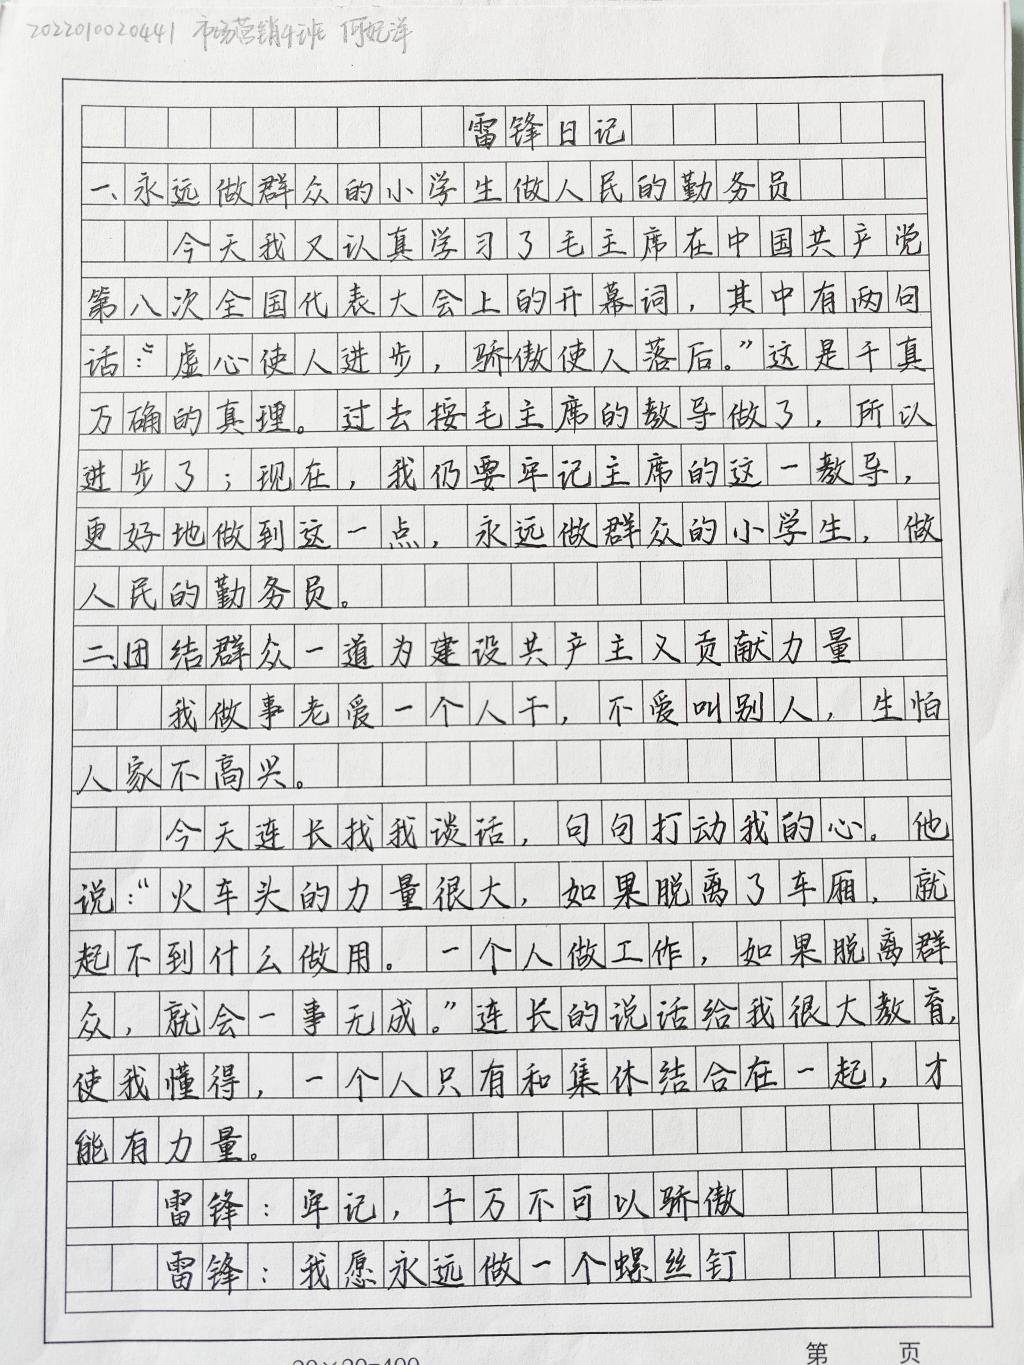 2022010020441 市场营销4班 何妃洋
雷锋日记
一、永远做群众的小学生做人民的勤务员
今天我又认真学习了毛主席在中国共产党
第八次全国代表大会上的开幕词，其中有两句
话：“虚心使人进步，骄傲使人落后。”这是千真
万确的真理。过去按毛主席的教导做了，所以
进步了；现在，我仍要牢记主席的这一教导，
更好地做到这一点，永远做群众的小学生，做
人民的勤务员。
二、团结群众一道为建设共产主义贡献力量
我做事老爱一个人干，不爱叫别人，生怕
人家不高兴。
今天连长找我谈话，句句打动我的心。他
说：“火车头的力量很大，如果脱离了车厢，就
起不到什么做用。一个人做工作，如果脱离群
众，就会一事无成。”连长的说话给我很大教育，
使我懂得，一个人只有和集体结合在一起，才
能有力量。
雷锋：牢记，千万不可以骄傲
雷锋：我愿永远做一个螺丝钉
20×20=400 第 页